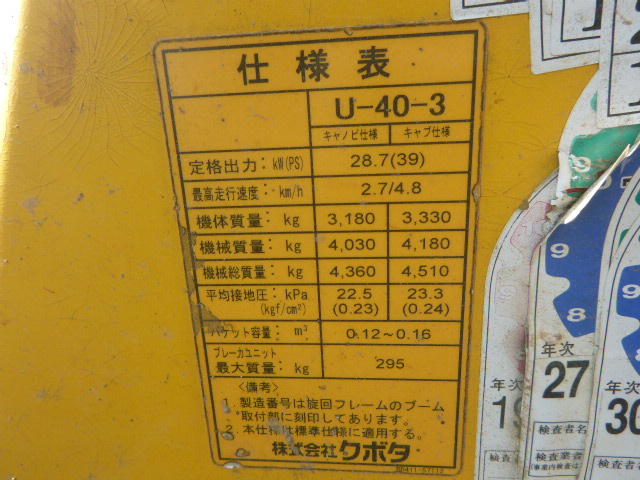 仕様表
U-40-3
キャノピ仕様 キャブ仕様
定格出力: kW(PS) 28.7(39)
最高走行速度: km/h 2.7/4.8
機体質量: kg 3,180 3,330
機械質量: kg 4,030 4,180
機械総質量: kg 4,360 4,510
平均接地圧: kPa 22.5 23.3
(kgf/cm²) (0.23) (0.24)
バケット容量: m³ 0.12~0.16
ブレーカユニット
最大質量: kg 295
〈備考〉
1. 製造番号は旋回フレームのブーム
取付部に刻印してあります。
2. 本仕様は標準仕様に適用する。
株式会社クボタ
9
8
年次
19
検査
9
8
年次
27
検査者名
検査業者
年次
30
検査者